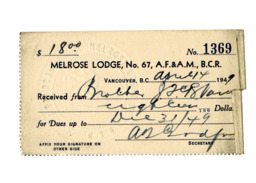 $ 18 00 No. 1369
MELROSE LODGE, No. 67, A.F.&A.M., B.C.R.
VANCOUVER, B.C. April 14 1949
Received from Brother
eighteen 100 Dolla
for Dues up to Dec 31/49
AFFIX YOUR SIGNATURE ON SECRETARY
OTHER SIDE